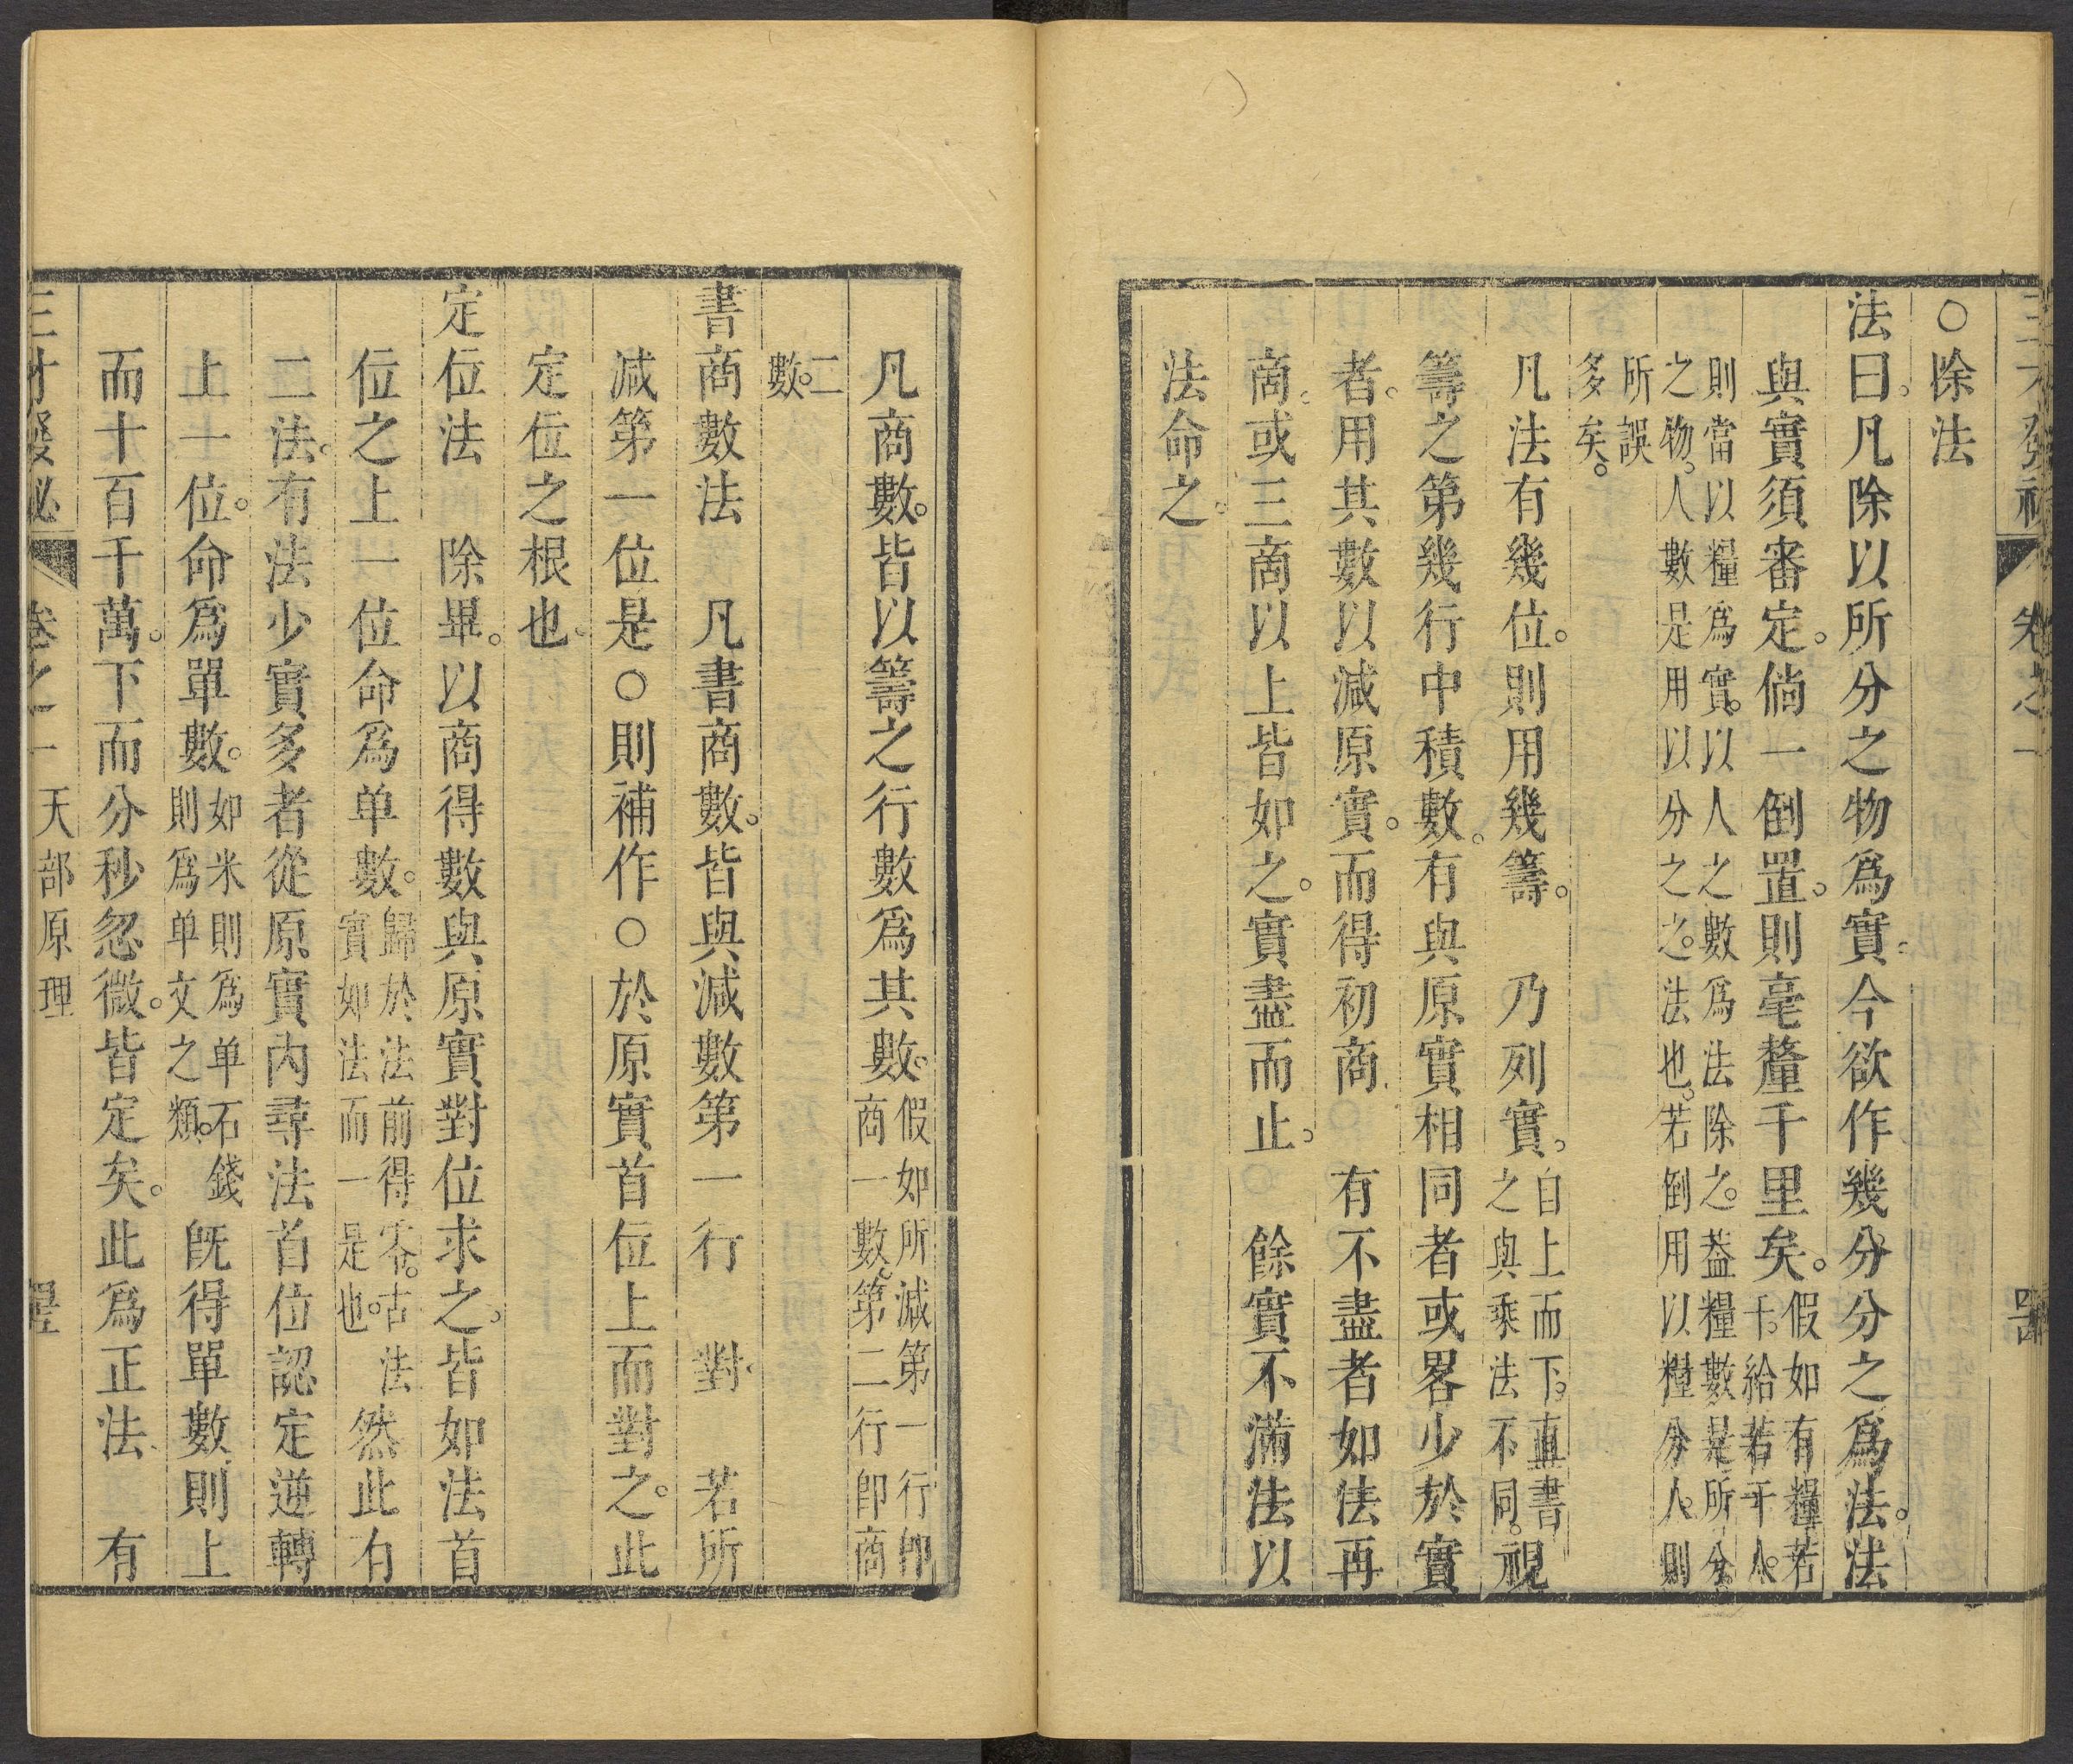 三才發秘 卷之一 四
○除法
法曰。凡除以所分之物爲實。今欲作幾分分之爲法。法
與實須審定。倘一倒置。則毫釐千里矣。假如有糧若干。給若干人。
則當以糧爲實。以人之數爲法除之。葢糧數是所分之物。人數是用以分之之法也。若倒用以糧分人。則
所誤多矣。
凡法有幾位。則用幾籌。 乃列實。自上而下。直書之與乘法不同。視
籌之第幾行中積數。有與原實相同者或畧少於實
者。用其數以減原實。而得初商 有不盡者如法再
商。或三商以上皆如之。實盡而止。 餘實不滿法以
法命之。
凡商數。皆以籌之行數爲其數。假如所減第一行卽商一數。第二行卽商
二數。
書商數法 凡書商數。皆與減數第一行 對 若所
減第一位是○則補作○於原實首位上而對之。此
定位之根也。
定位法 除畢。以商得數與原實對位求之。皆如法首
位之上一位命爲单數。歸於法前得零。古法實如法而一是也。然此有
二法。有法少實多者從原實內尋法首位認定逆轉
上一位。命爲單數。如米則爲单石錢則爲单文之類。 旣得單數則上
而十百千萬。下而分秒忽微。皆定矣。此爲正法 有
三才發秘 卷之一 天部原理